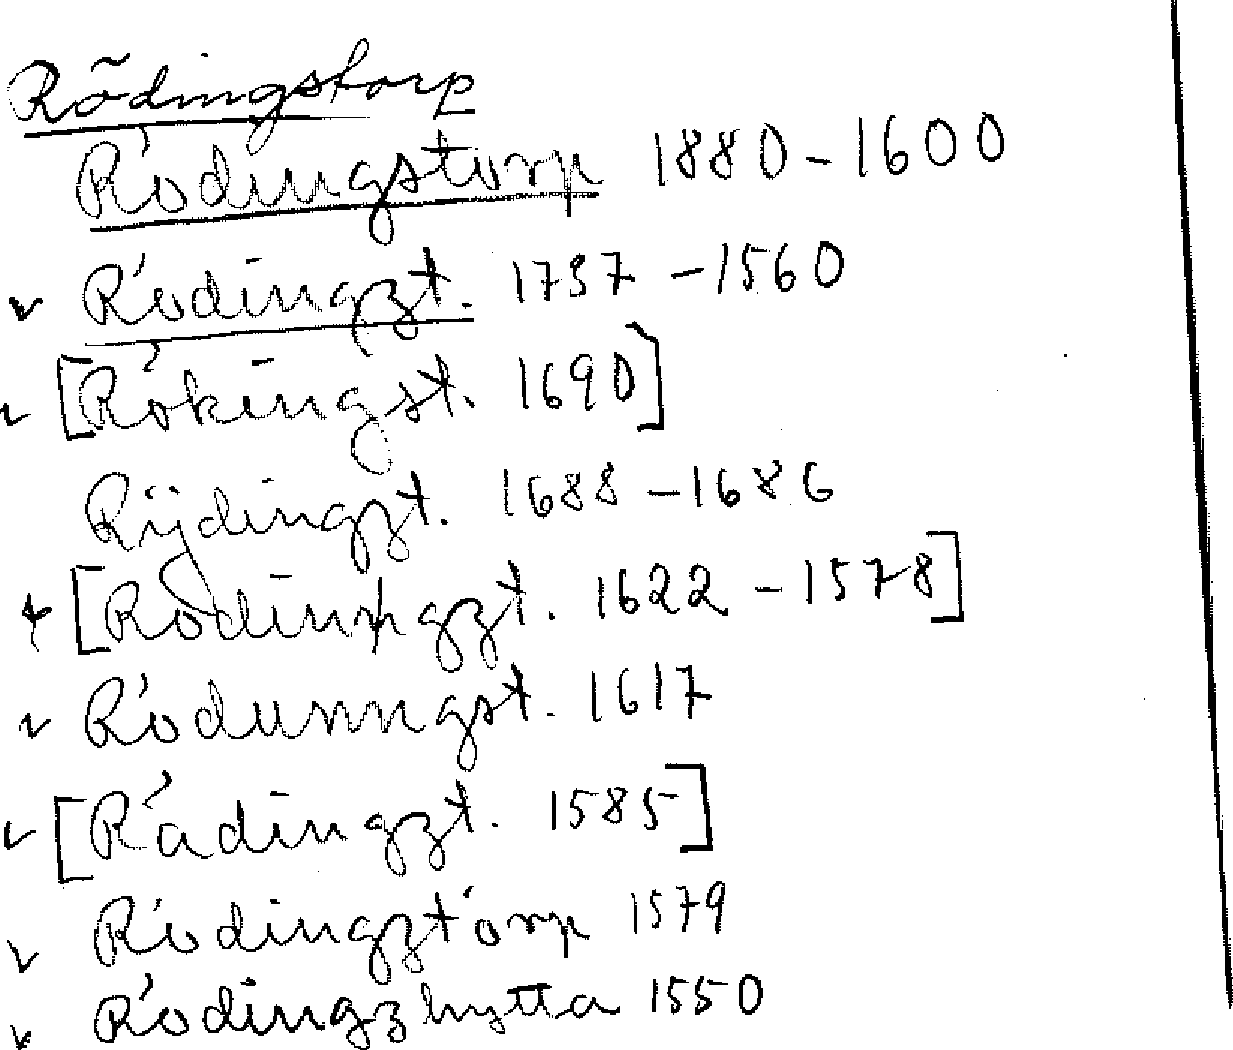 Rödingstorp
Rödingstorp 1880-1600
v Rödingzt. 1737-1560
v [Rökingst. 1690]
Rijdingzt. 1688-1686
+ [Rodinngzt. 1622-1578]
v Rödunngst. 1617
v [Rådingzt. 1585]
v Rödingztörp 1579
v Rödingzhytta 1550